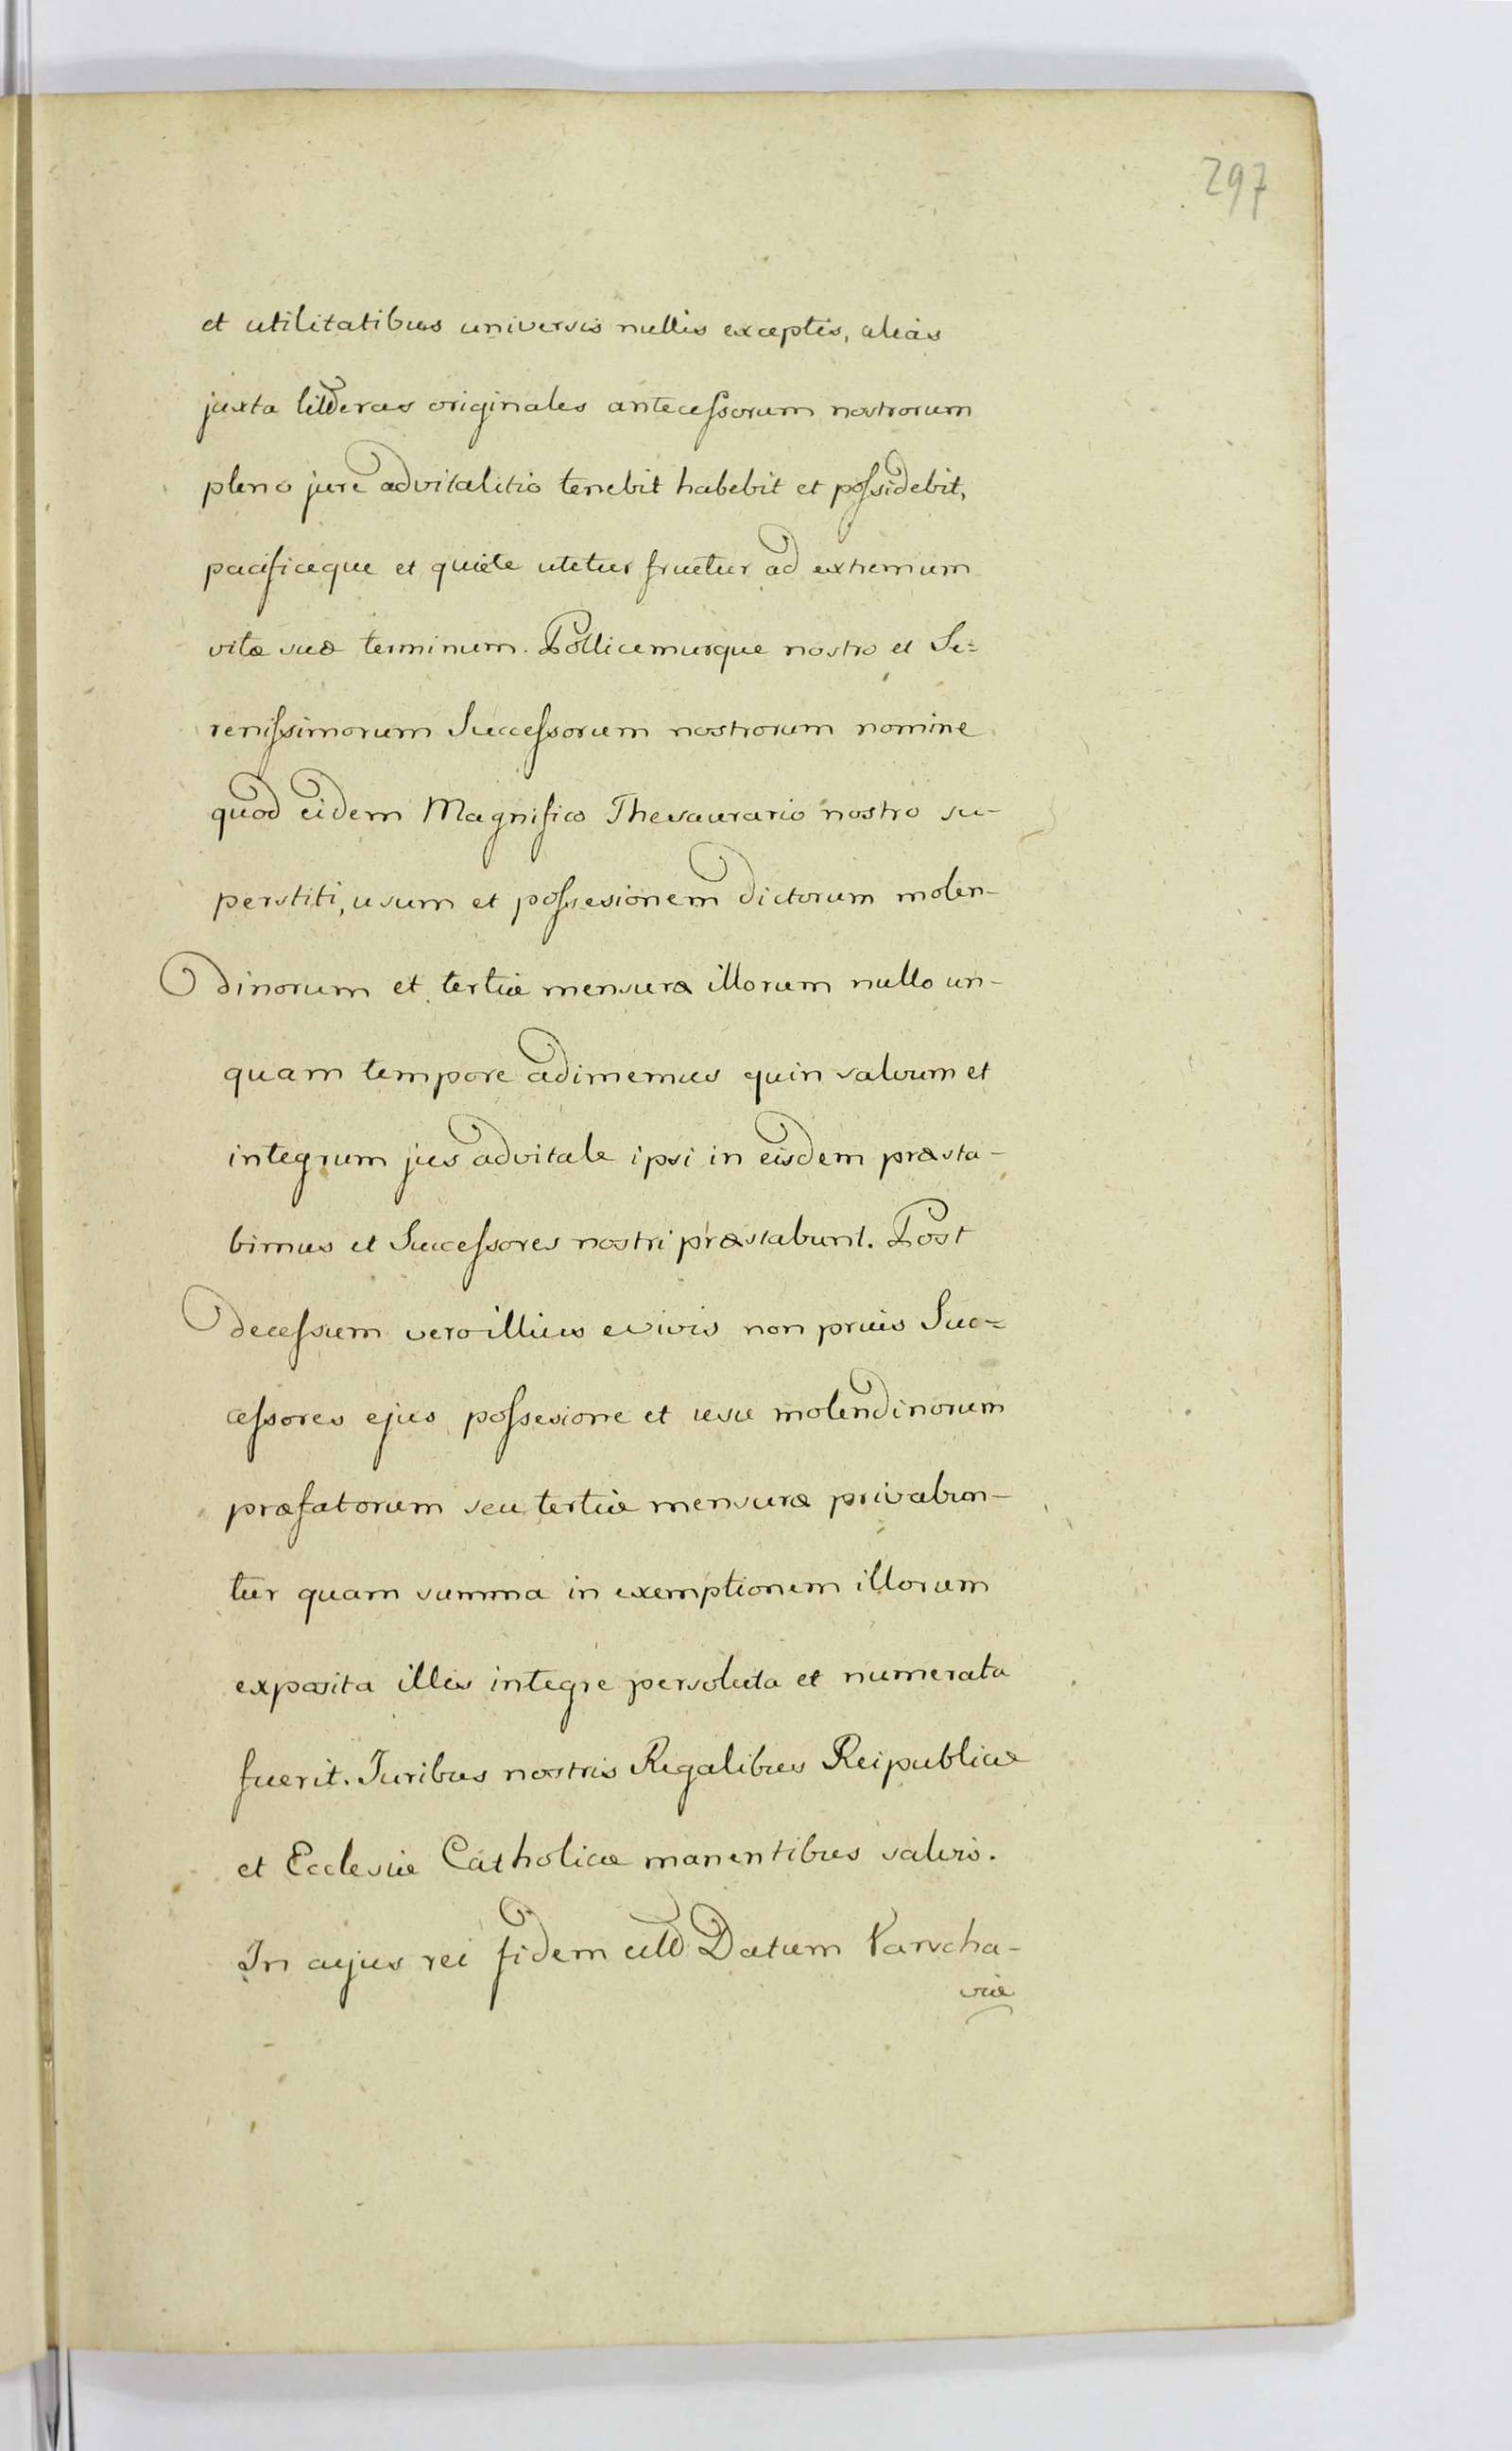 297
et utilitatibus universis nullis exceptis, aliàs
juxta litteras originales antecessorum nostrorum
pleno jure advitalitio tenebit habebit et possidebit,
pacificeque et quiete utetur fruetur ad extremum
vitæ suæ terminum. Pollicemurque nostro et Se=
renissimorum Successorum nostrorum nomine
quod eidem Magnifico Thesaurario nostro su-
perstiti, usum et possesionem dictorum molen-
dinorum et tertiæ mensuræ illorum nullo un-
quam tempore adimemus quin salvum et
integrum jus advitale ipsi in eisdem præsta-
bimus et Successores nostri præstabunt. Post
decessum vero illius e vivis non prius Suc=
cessores ejus possesione et usu molendinorum
præfatorum seu tertiæ mensuræ privabun-
tur quam summa in exemptionem illorum
exposita illis integre persoluta et numerata
fuerit. Juribus nostris Regalibus Reipublicæ
et Ecclesiæ Catholicæ manentibus salvis.
In cujus rei fidem Datum Varscha-
viæ